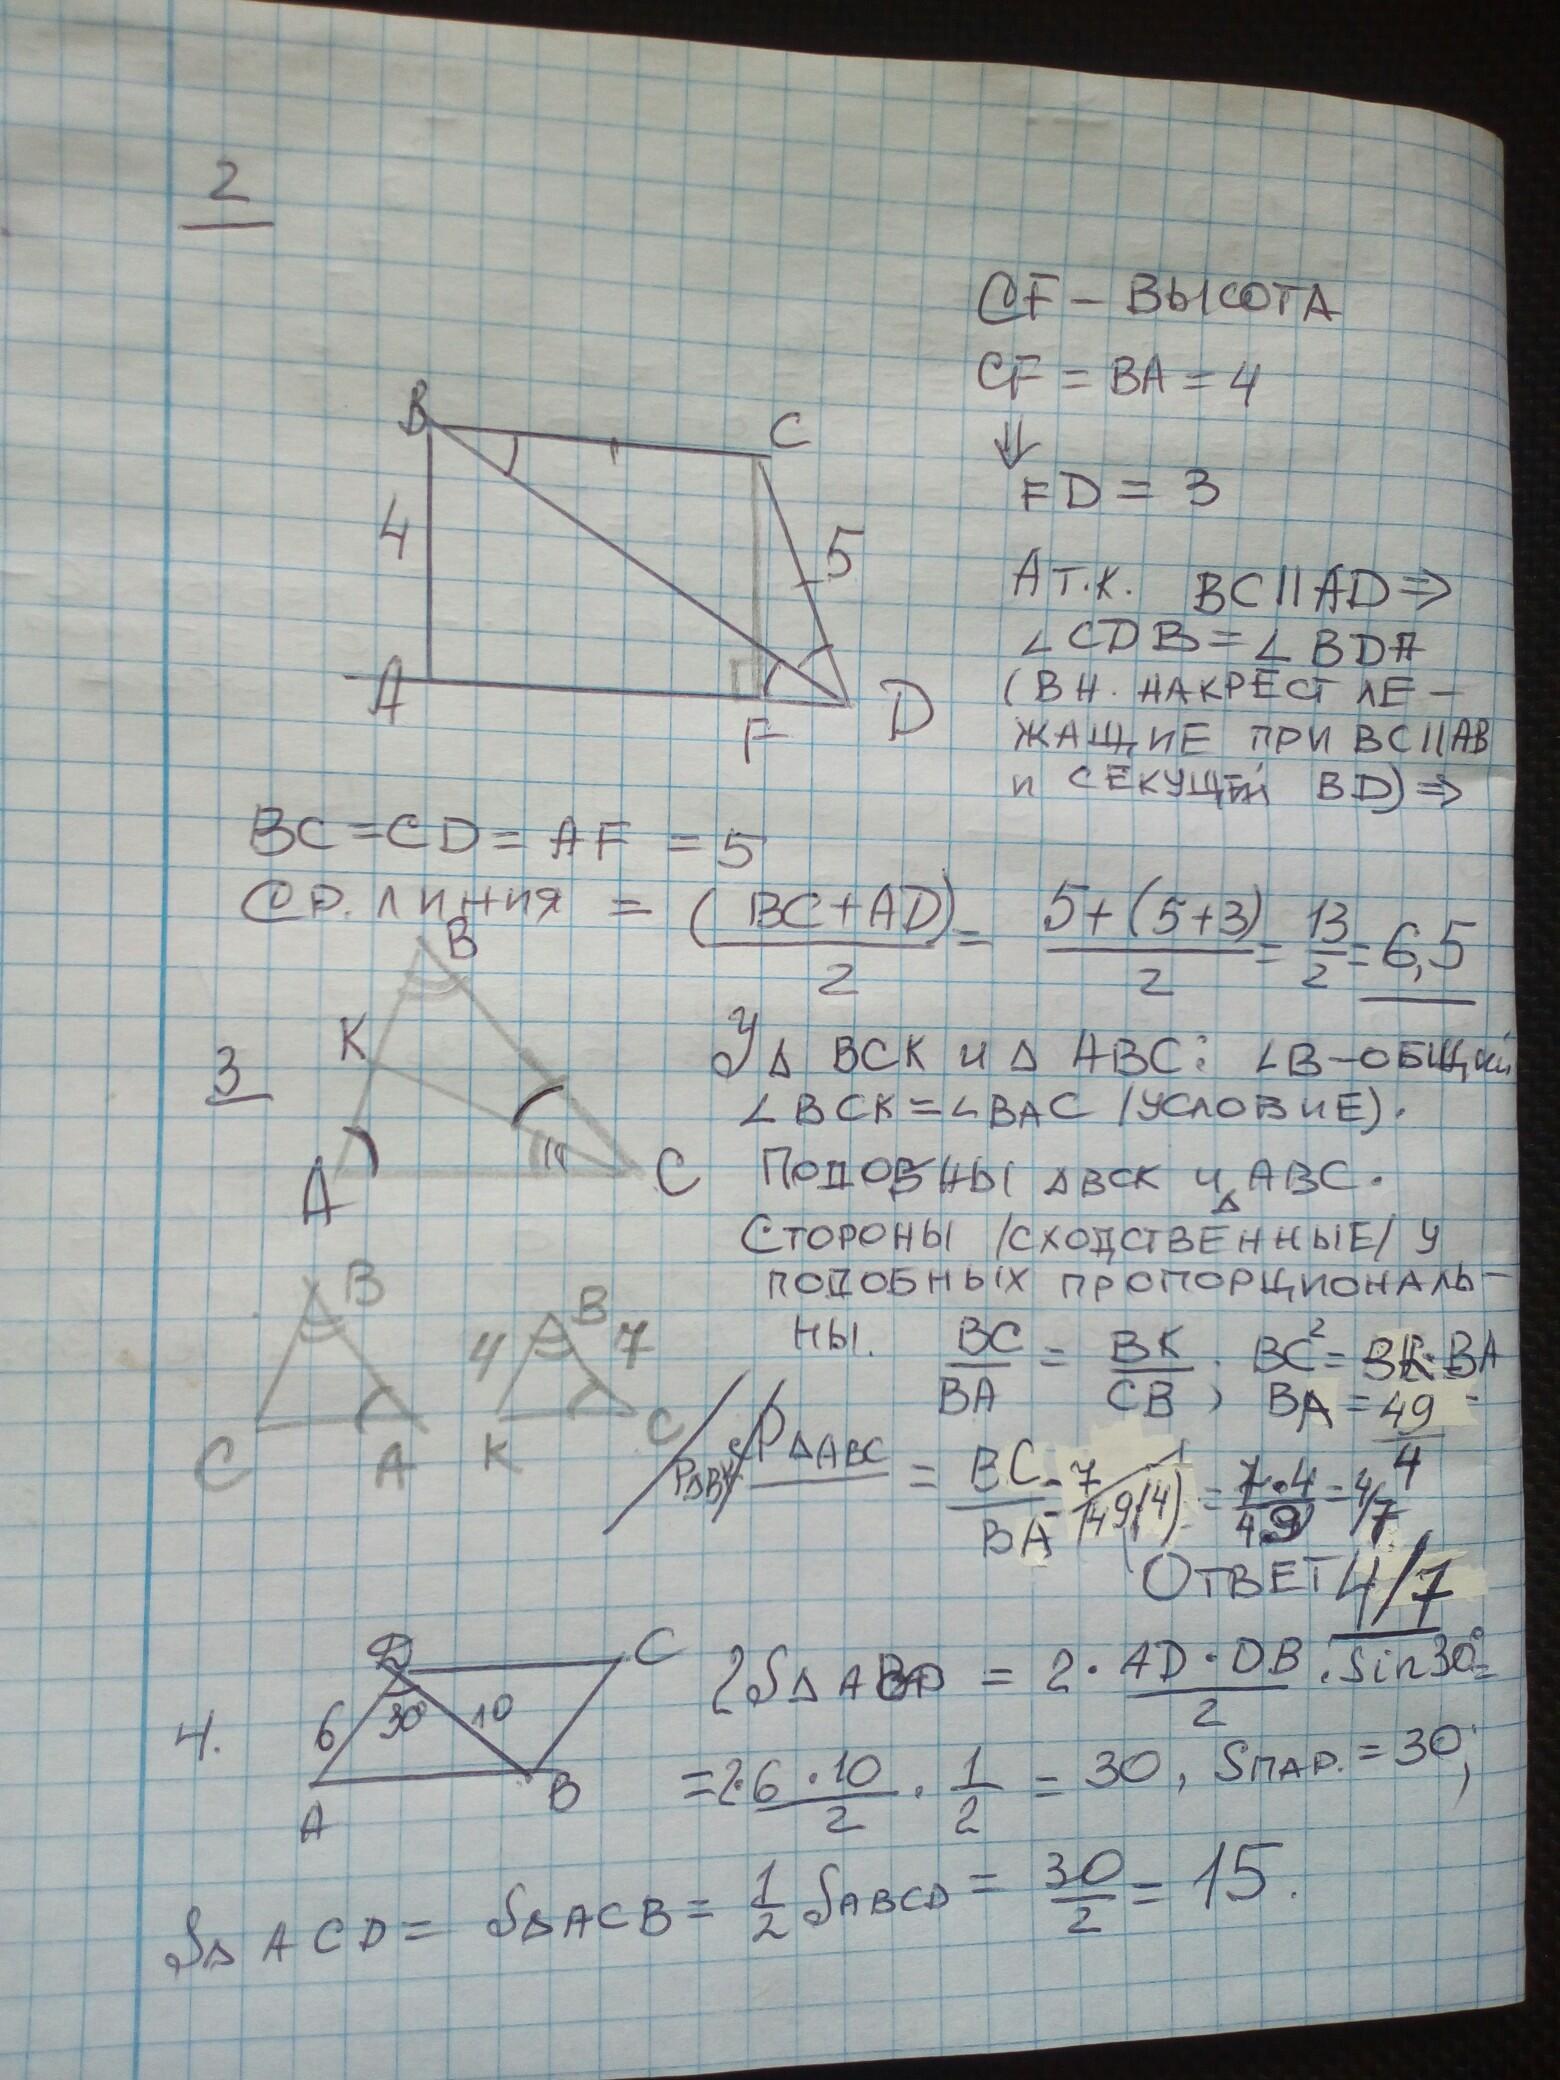 2
CF – ВЫСОТА
CF = BA = 4
⇓
FD = 3
B
C
4
5
A
F
D
А Т.К. BC || AD ⇒
∠CDB = ∠BDA
(ВН. НАКРЕСТ ЛЕ-
ЖАЩИЕ ПРИ BC || AB
И СЕКУЩЕЙ BD) ⇒
BC = CD = AF = 5
СР. ЛИНИЯ = (BC + AD)/2 = 5 + (5 + 3)/2 = 13/2 = 6,5
3
B
K
A
C
У Δ BCK И Δ ABC: ∠B – ОБЩИЙ
∠BCK = ∠BAC /УСЛОВИЕ).
ПОДОБНЫ Δ BCK И Δ ABC.
СТОРОНЫ /СХОДСТВЕННЫЕ/ У
ПОДОБНЫХ ПРОПОРЦИОНАЛЬ-
НЫ. BC/BA = BK/CB, BC² = BK·BA
BA = 49/4
B
C
A
4
B
7
K
C
PΔABC = BC/BA = 7/(49/4) = 7·4/49 = 4/7
ОТВЕТ 4/7
4.
D
C
6
30
10
A
B
2SΔ ABD = 2 · AD · DB/2 · sin 30° =
= 2·6 · 10/2 · 1/2 = 30, SПАР. = 30;
SΔ ACD = SΔ ACB = 1/2 SABCD = 30/2 = 15.